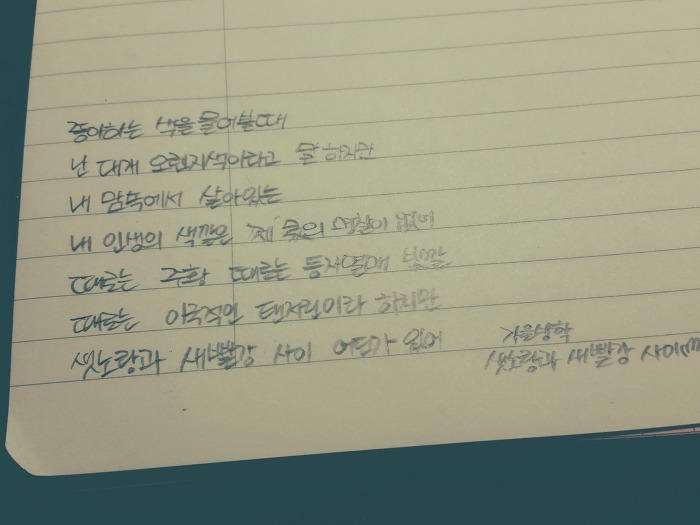 좋아하는 색을 물어볼때
난 대개 오렌지색이라고 말 하지만
내 맘속에서 살아있는
내 인생의 색깔은 제 몫의 명찰이 없어
때로는 주황 때로는 등자열매 빛깔
때로는 이국적인 탠저린이라 하지만
샛노랑과 새빨강 사이 어딘가 있어
가을방학
샛노랑과 새빨강 사이(m